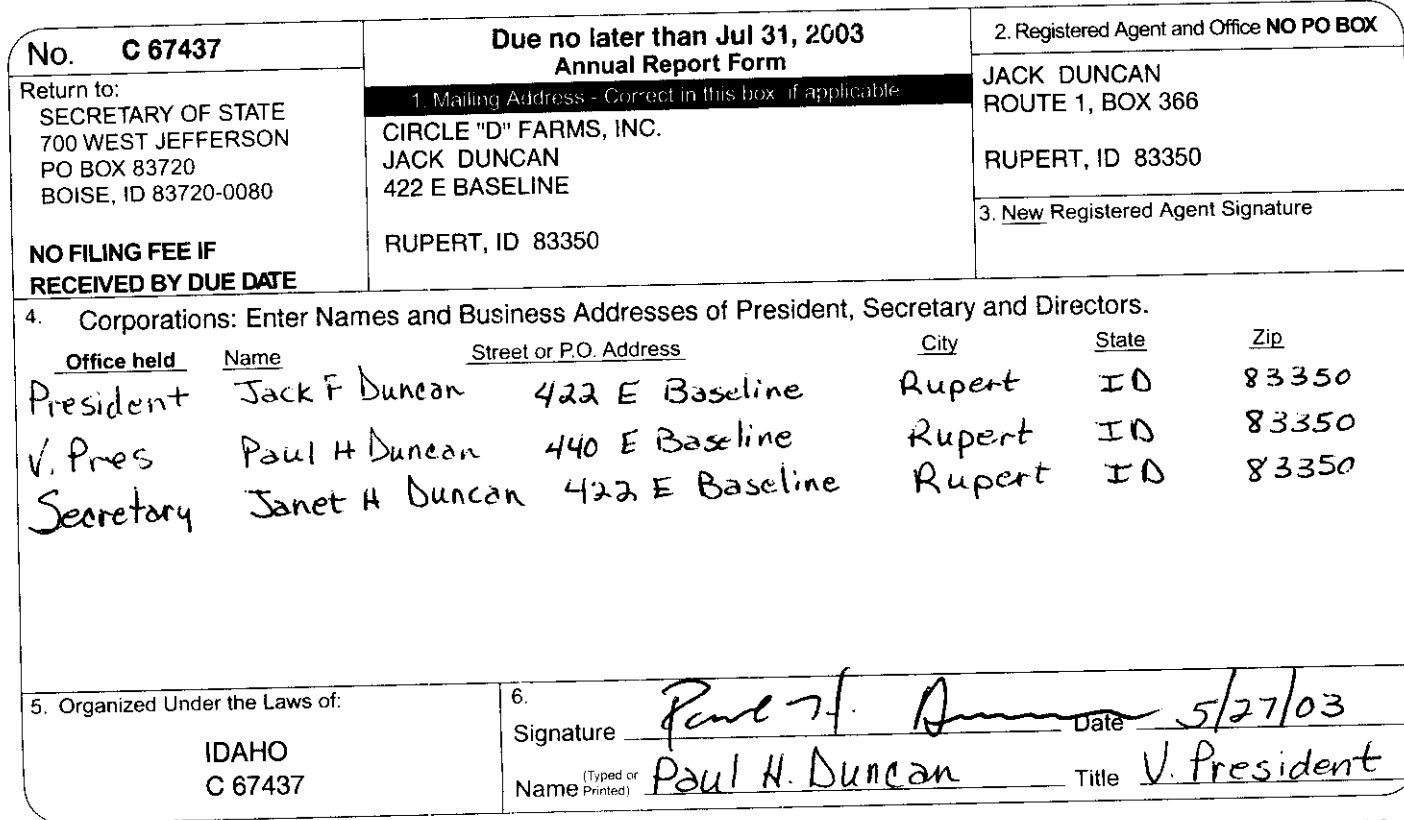 No. C 67437
Return to:
SECRETARY OF STATE
700 WEST JEFFERSON
PO BOX 83720
BOISE, ID 83720-0080
NO FILING FEE IF
RECEIVED BY DUE DATE
Due no later than Jul 31, 2003
Annual Report Form
1. Mailing Address - Correct in this box if applicable
CIRCLE "D" FARMS, INC.
JACK DUNCAN
422 E BASELINE
RUPERT, ID 83350
2. Registered Agent and Office NO PO BOX
JACK DUNCAN
ROUTE 1, BOX 366
RUPERT, ID 83350
3. New Registered Agent Signature
4. Corporations: Enter Names and Business Addresses of President, Secretary and Directors.
Office held Name Street or P.O. Address City State Zip
President Jack F Duncan 422 E Baseline Rupert ID 83350
V. Pres Paul H Duncan 440 E Baseline Rupert ID 83350
Secretary Janet H Duncan 422 E Baseline Rupert ID 83350
5. Organized Under the Laws of:
IDAHO
C 67437
6.
Signature Paul H. Duncan Date 5/27/03
Name (Typed or Printed) Paul H. Duncan Title V. President